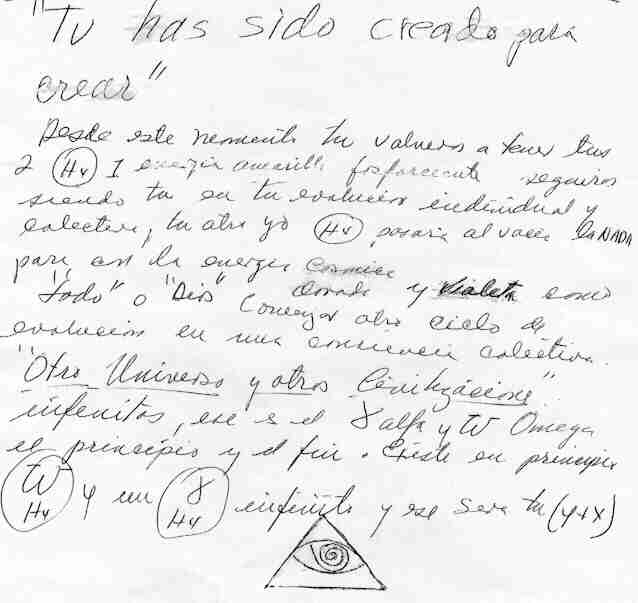 "Tu has sido creado para
crear"
Desde este momento tu valveras a tener tus
2 (H4) I energia amarilla fosforecente seguiras
siendo tu en tu evolucion individual y
colectiva, tu otro yo (H4), pasaria al vacio la NADA
para con la energia Cosmica
"Todo" o "Dios" Dorada y Violeta como
Comenzar otro ciclo de
evolucion en una conciencia colectiva.
"Otro Universo y otros Civilizacione"
infinitos, ese es el 8 alfa y W Omega
el principio y el fin. Existe un principio
W H4 y un 8 H4 infinito y ese sera tu (y+x)